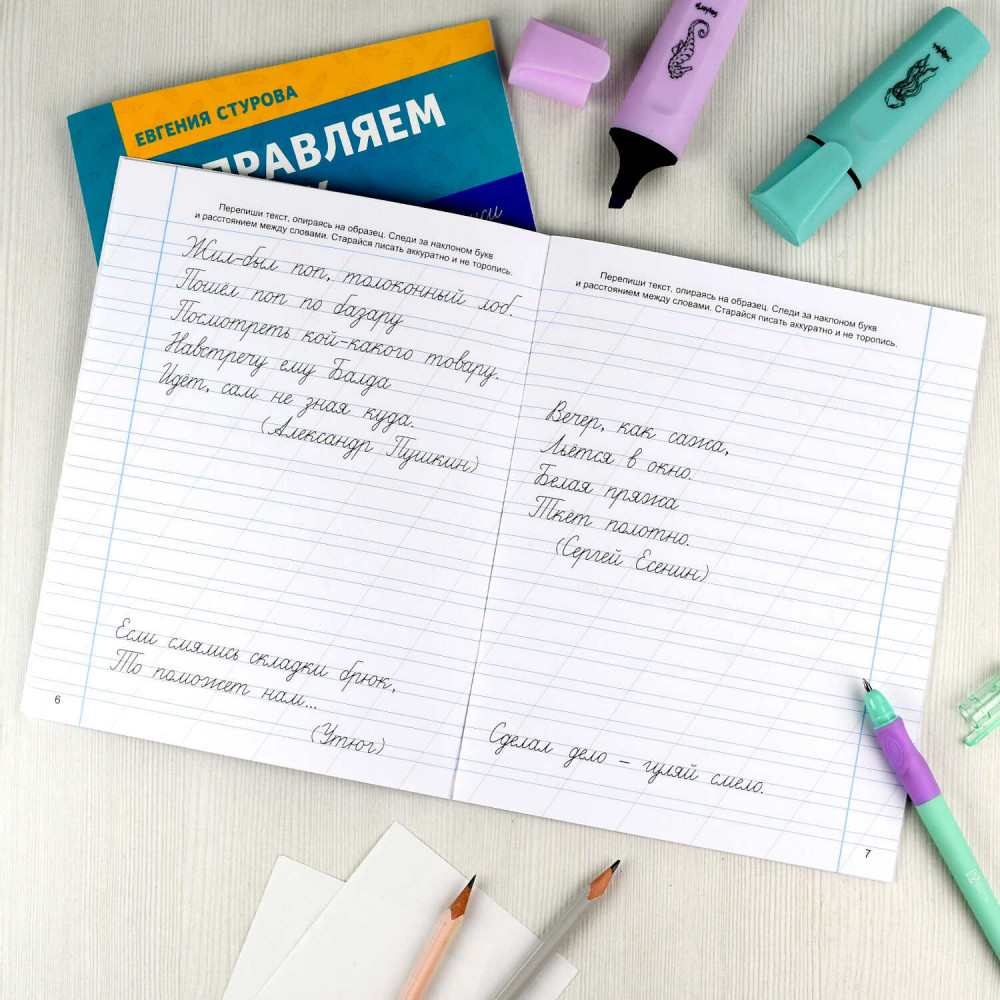 ЕВГЕНИЯ СТУРОВА
Перепиши текст, опираясь на образец. Следи за наклоном букв
и расстоянием между словами. Старайся писать аккуратно и не торопись.
Жил-был поп, толоконный лоб.
Пошёл поп по базару
Посмотреть кой-какого товару.
Навстречу ему Балда
Идёт, сам не зная куда.
(Александр Пушкин)
Если смялись складки брюк,
То поможет нам...
(Утюг)
6
Перепиши текст, опираясь на образец. Следи за наклоном букв
и расстоянием между словами. Старайся писать аккуратно и не торопись.
Вечер, как сажа,
Льётся в окно.
Белая пряжа
Ткёт полотно.
(Сергей Есенин)
Сделал дело – гуляй смело.
7